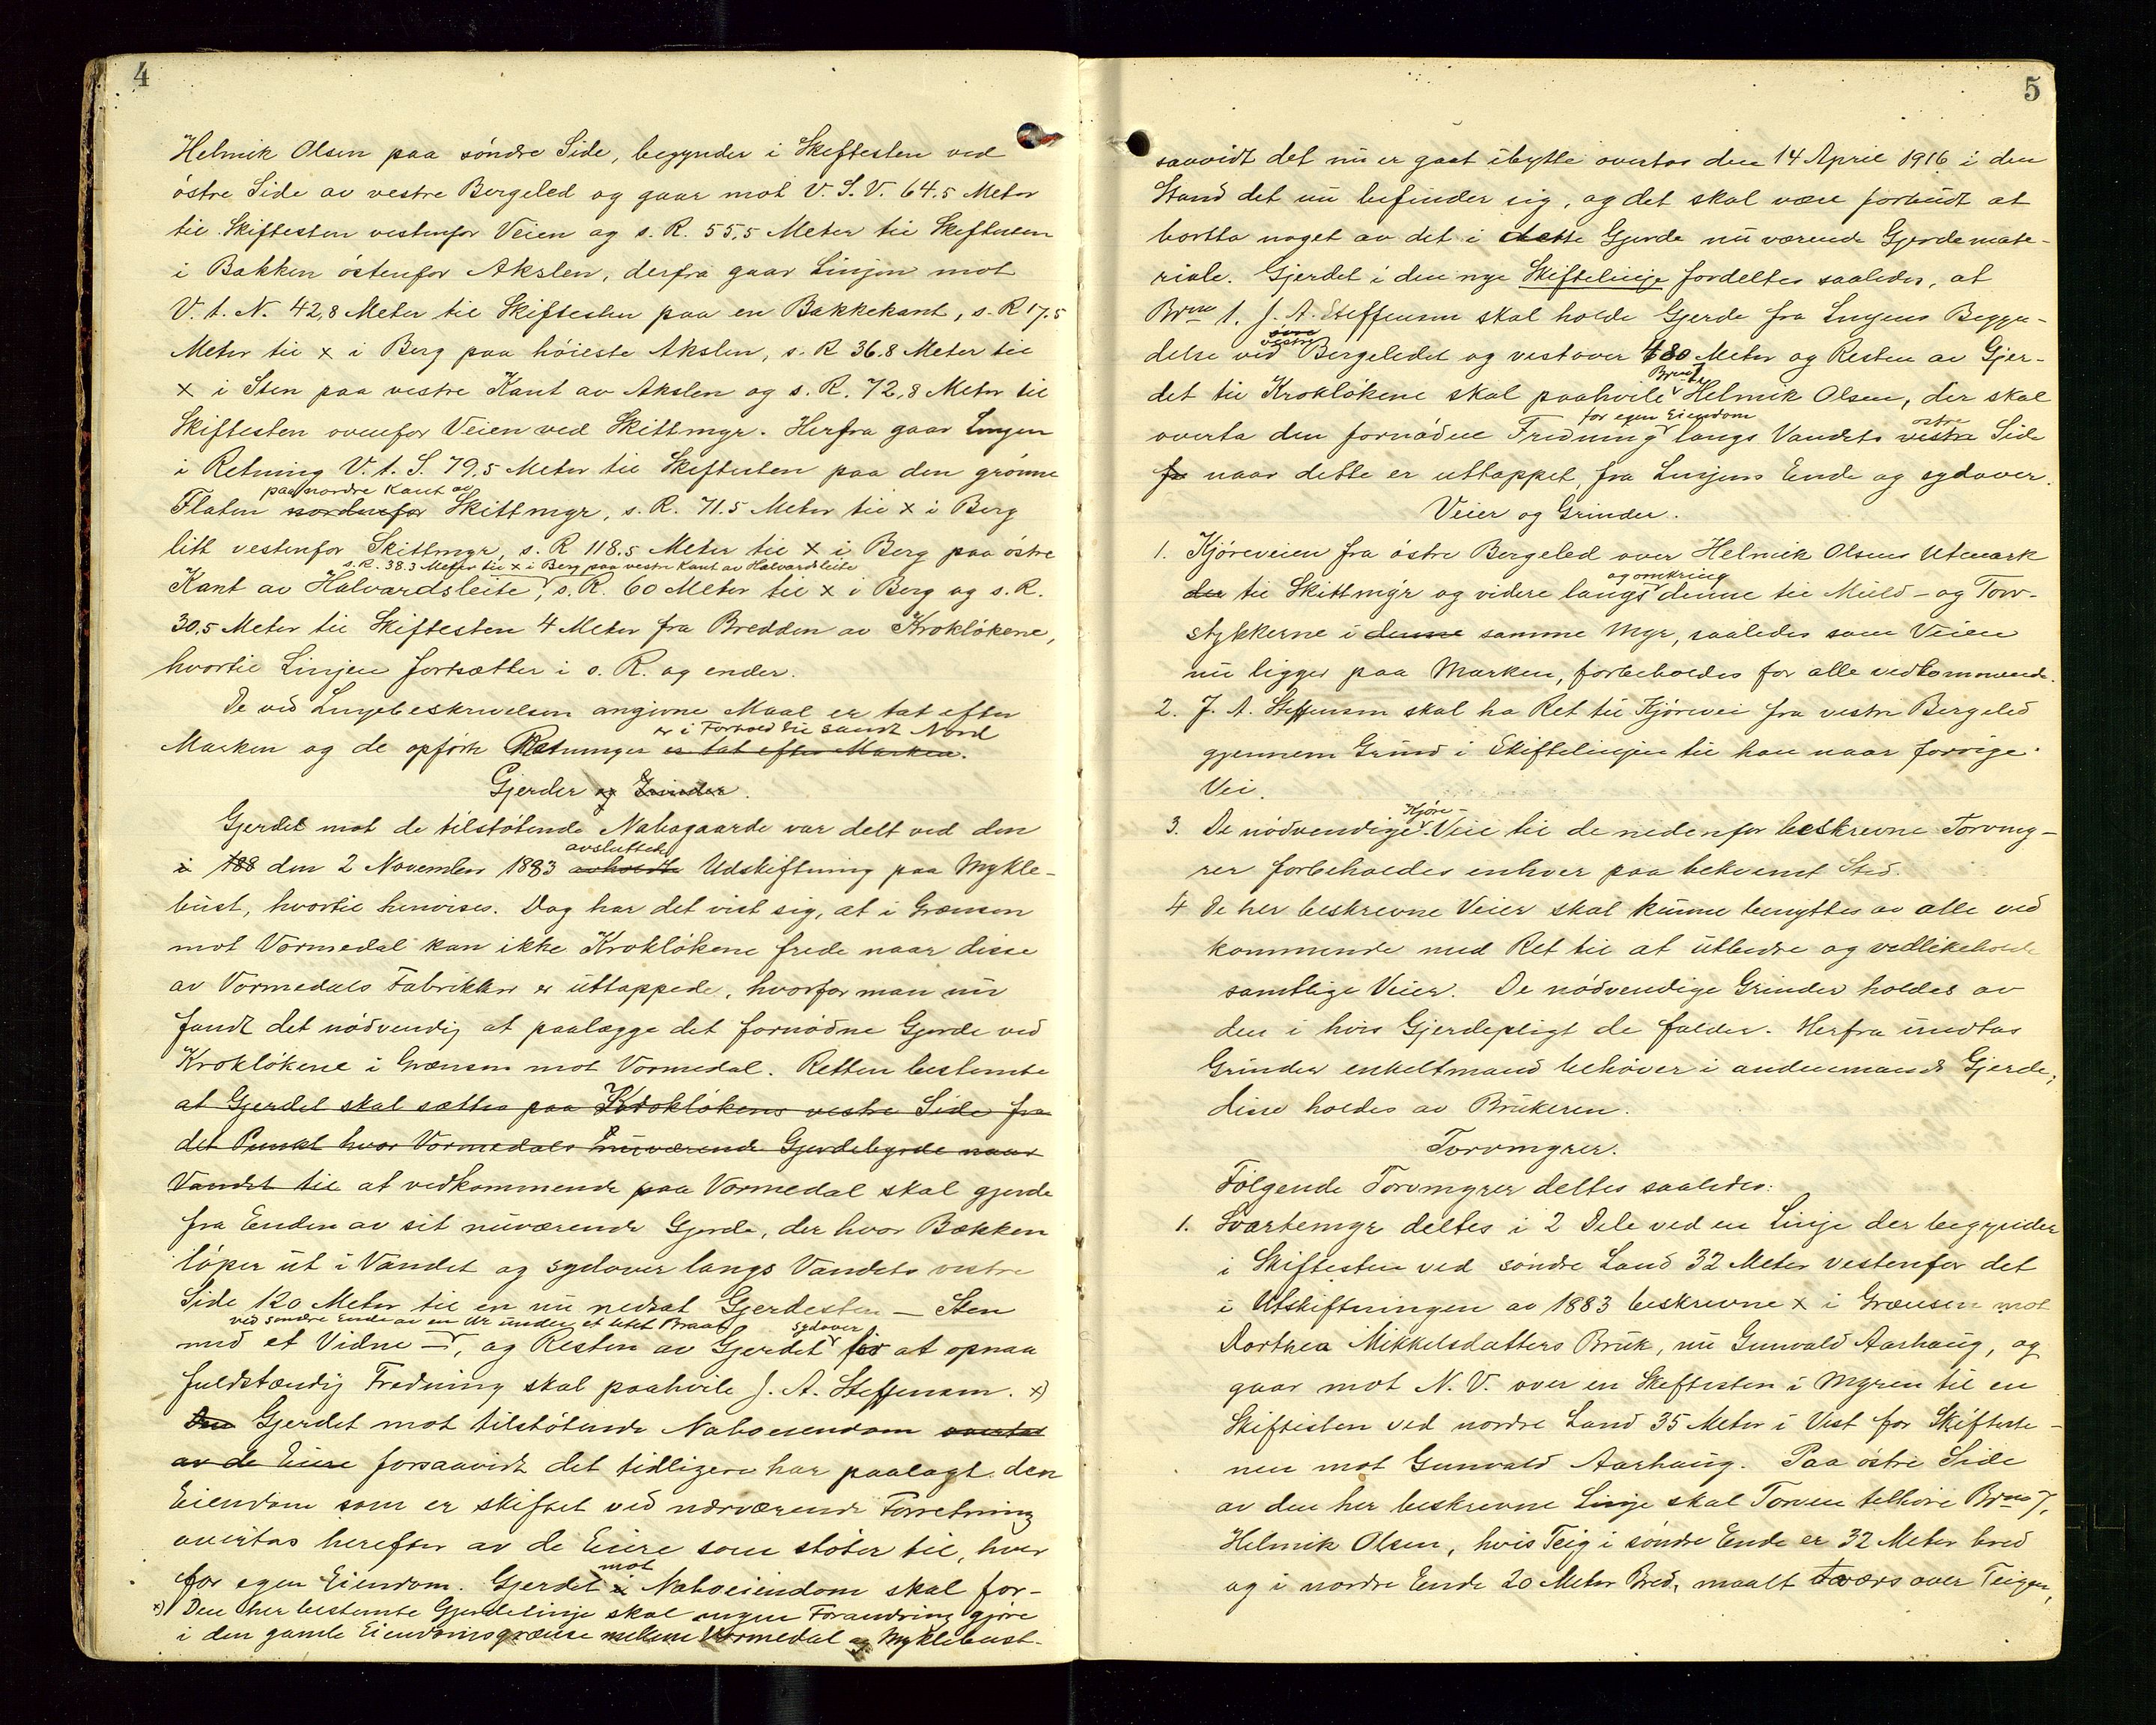 4
Helmik Olsen paa söndre Side, begynder i Skiftesten ved
östre Side av vestre Bergeled og gaar mot V. S. V. 64.5 Meter
til Skiftesten vestenfor Veien og s. R. 55,5 Meter til Skiftesten
i Bakken östenfor Akslen, derfra gaar Linjen mot
V. t. N. 42,8 Meter til Skiftesten paa en Bakkekant, s. R 17.5
Meter til x i Berg paa höieste Akslen, s. R 36.8 Meter til
x i Sten paa vestre Kant av Akslen og s. R. 72,8 Meter til
Skiftesten ovenfor Veien ved Skittmyr. Herfra gaar Linjen
i Retning V. t. S. 79,5 Meter til Skiftesten paa den grönne
paa nordre Kant av
Flaten nordenfor Skittmyr, s. R. 71.5 Meter til x i Berg
litt vestenfor Skittmyr, s. R 118.5 Meter til x i Berg paa östre
s. R. 38.3 Meter til x i Berg paa vestre Kant av Halvardsleite
Kant av Halvardsleite, s. R. 60 Meter til x i Berg og s. R.
30,5 Meter til Skiftesten 4 Meter fra Bredden av Kroklökene,
hvortil Linjen fortsætter i s. R. og ender.
De ved Linjebeskrivelsen angivne Maal er tat efter
er i Forhold til sandt Nord
Marken og de opförte Retninger er tat efter Marken.
Gjerder og Grinder.
Gjerdet mot de tilstötende Nabogaarde var delt ved den
avsluttede
i 188 den 2 November 1883 avholdte Udskiftning paa Mykle-
bust, hvortil henvises. Dog har det vist sig, at i Grænsen
mot Vormedal kan ikke Kroklökene frede naar disse
av Vormedals Fabrikker er uttappede, hvorfor man nu
fandt det nödvendig at paalægge det fornödne Gjerde ved
Kroklökene i Grænsen mot Vormedal. Retten bestemte
at Gjerdet skal sættes paa Kroklökens vestre Side fra
det Punkt hvor Vormedals nuværende Gjerdebyrde naar
Vandet til at vedkommende paa Vormedal skal gjerde
fra Enden av sit nuværende Gjerde, der hvor Bækken
löper ut i Vandet og sydover langs Vandets vestre
Side 120 Meter til en nu nedsat Gjerdesten — Sten
ved söndre Ende av en Ur under et litet Braat
sydover
med et Vidne —, og Resten av Gjerdet for at opnaa
fuldstændig Fredning skal paahvile J. A. Steffensen. x)
Den Gjerdet mot tilstötende Naboeiendom overtas
av de Eiere forsaavidt det tidligere har paalagt den
Eiendom som er skiftet ved nærværende Forretning
overtas herefter av de Eiere som stöter til, hver
mot
for egen Eiendom. Gjerdet i Naboeiendom skal for-
x) Den her bestemte Gjerdelinje skal ingen Forandring gjöre
i den gamle Eiendomsgrænse mellem Vormedal og Myklebust.
5
saavidt det nu er gaat ibytte overtas den 14 April 1916 i den
Stand det nu befinder sig, og det skal være forbudt at
bortta noget av det i dette Gjerde nu værende Gjerdemate-
riale. Gjerdet i den nye Skiftelinje fordeltes saaledes, at
Brno 1. J. A. Steffensen skal holde Gjerde fra Linjens Begyn-
vestre
delse ved Bergeledet og vestover 480 Meter og Resten av Gjer-
Brno 7
det til Kroklökene skal paahvile Helmik Olsen, der skal
for egen Eiendom
östre
overta den fornödne Fredning langs Vandets vestre Side
fr naar dette er uttappet, fra Linjens Ende og sydover.
Veier og Grinder.
1. Kjöreveien fra östre Bergeled over Helmik Olsens Utmark
og omkring
der til Skittmyr og videre langs denne til Muld- og Torv-
stykkerne i denne samme Myr, saaledes som Veien
nu ligger paa Marken, forbeholdes for alle vedkommende.
2. J. A. Steffensen skal ha Ret til Kjörevei fra vestre Bergeled
gjennem Grind i Skiftelinjen til han naar forrige
Vei.
Kjöre-
3. De nödvendige Veie til de nedenfor beskrevne Torvmy-
rer forbeholdes enhver paa bekvemt Sted.
4 De her beskrevne Veier skal kunne benyttes av alle ved
kommende med Ret til at utbedre og vedlikeholde
samtlige Veier. De nödvendige Grinder holdes av
den i hvis Gjerdepligt de falder. Herfra undtas
Grinder enkeltmand behöver i andenmands Gjerde;
disse holdes av Brukeren.
Torvmyrer.
Fölgende Torvmyrer deltes saaledes:
1. Svartemyr deltes i 2 Dele ved en Linje der begynder
i Skiftesten ved söndre Land 32 Meter vestenfor det
i Utskiftningen av 1883 beskrevne x i Grænsen mot
Dorthea Mikkelsdatters Bruk, nu Gunvald Aarhaug, og
gaar mot N. V. over en Skiftesten i Myren til en
Skiftesten ved nordre Land 35 Meter i Vest for Skifteste-
nen mot Gunvald Aarhaug. Paa östre Side
av den her beskrevne Linje skal Torven tilhöre Brno 7,
Helmik Olsen, hvis Teig i söndre Ende er 32 Meter bred
og i nordre Ende 20 Meter Bred, maalt tværs over Teigen,